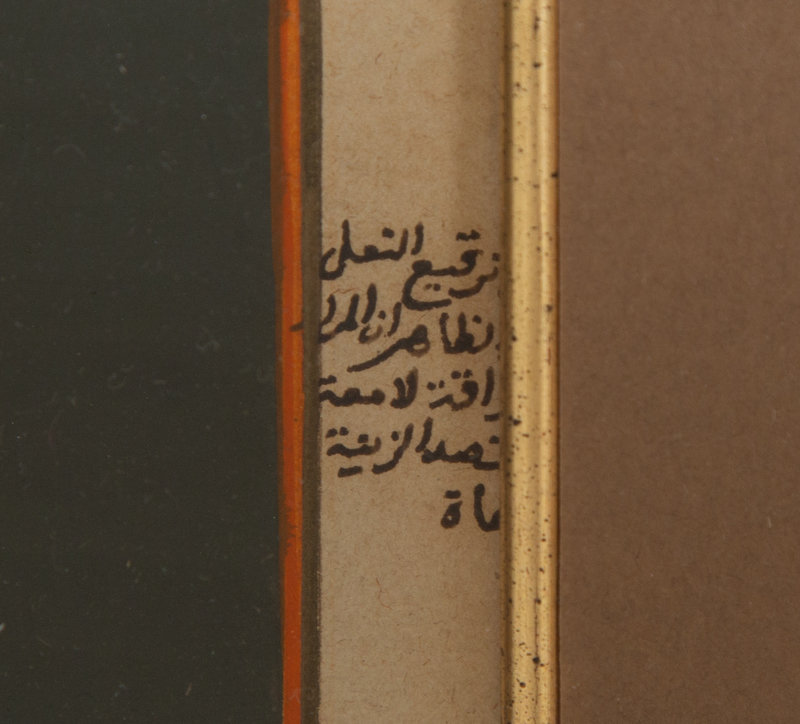 ترقيع النعلى
لظاهر ان المرا
راقة لامعة
نصد الزينة
ماة